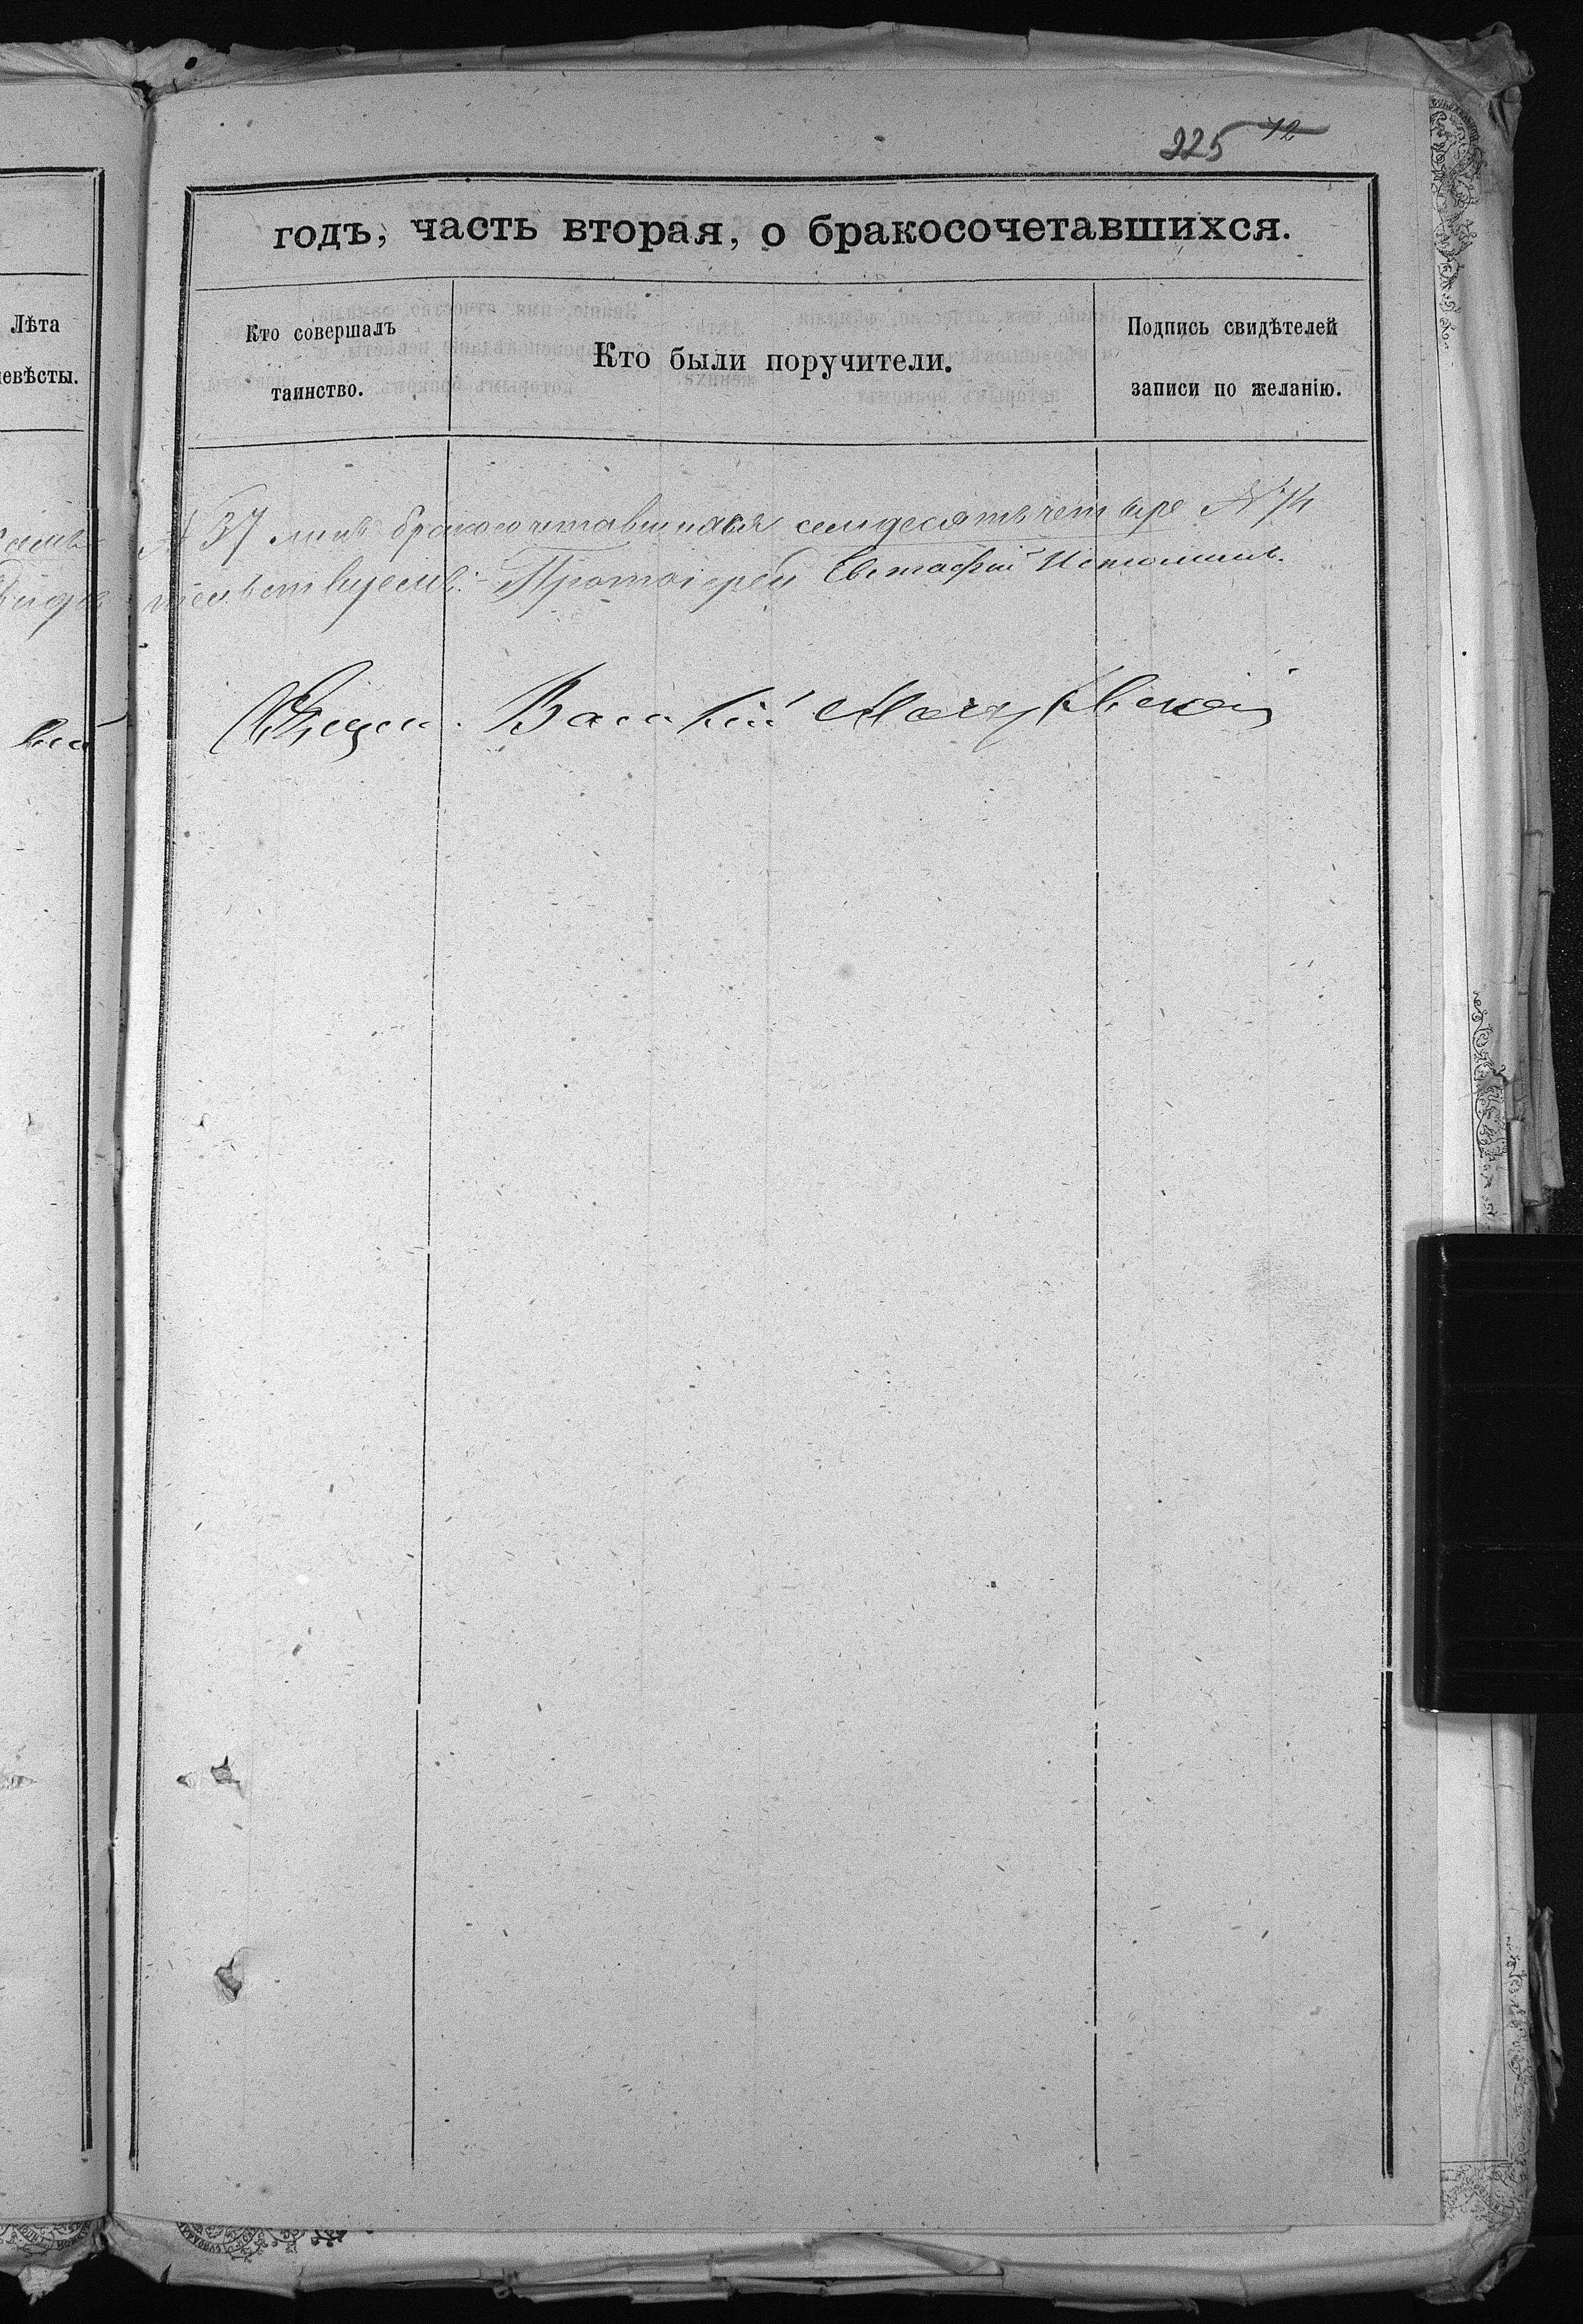 225 12
годъ, часть вторая, о бракосочетавшихся.
Лѣта
невѣсты.
Кто совершалъ
таинство.
Кто были поручители.
Подпись свидѣтелей
записи по желанію.
№ 37 лицъ бракосочетавшихся семдесятъ четыре № 74
тельствуемъ: Протоіерей Евстафій
Священ. Василій